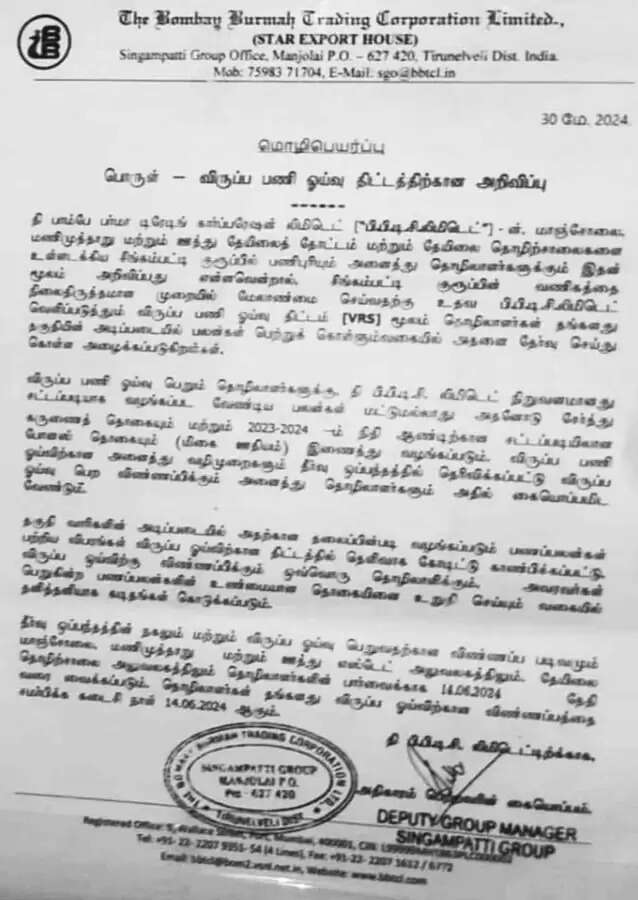 The Bombay Burmah Trading Corporation Limited.,
(STAR EXPORT HOUSE)
Singampatti Group Office, Manjolai P.O. – 627 420, Tirunelveli Dist. India.
Mob: 75983 71704, E-Mail: sgo@bbtcl.in
30 மே, 2024.
மொழிபெயர்ப்பு
பொருள் – விருப்ப பணி ஓய்வு திட்டத்திற்கான அறிவிப்பு
------
தி பாம்பே பர்மா டிரேடிங் கார்ப்பரேஷன் லிமிடெட் ["பி.பி.டி.சி.லிமிடெட்"] - ன், மாஞ்சோலை,
மணிமுத்தாறு மற்றும் ஊத்து தேயிலைத் தோட்டம் மற்றும் தேயிலை தொழிற்சாலைகளை
உள்ளடக்கிய சிங்கம்பட்டி குரூப்பில் பணிபுரியும் அனைத்து தொழிலாளர்களுக்கும் இதன்
மூலம் அறிவிப்பது என்னவென்றால், சிங்கம்பட்டி குரூப்பின் வணிகத்தை
நிலைதிருத்தமான முறையில் மேலாண்மை செய்வதற்கு உதவ பி.பி.டி.சி.லிமிடெட்
வெளிப்படுத்தும் விருப்ப பணி ஓய்வு திட்டம் [VRS] மூலம் தொழிலாளர்கள் தங்களது
தகுதியின் அடிப்படையில் பலன்கள் பெற்றுக் கொள்ளும்வகையில் அதனை தேர்வு செய்து
கொள்ள அழைக்கப்படுகிறார்கள்.
விருப்ப பணி ஓய்வு பெறும் தொழிலாளர்களுக்கு, தி பி.பி.டி.சி. லிமிடெட் நிறுவனமானது
சட்டப்படியாக வழங்கப்பட வேண்டிய பலன்கள் மட்டுமல்லாது அதனோடு சேர்த்து
கருணைத் தொகையும் மற்றும் 2023-2024 –ம் நிதி ஆண்டிற்கான சட்டப்படியிலான
போனஸ் தொகையும் (மிகை ஊதியம்) இணைத்து வழங்கப்படும். விருப்ப பணி
ஓய்விற்கான அனைத்து வழிமுறைகளும் தீர்வு ஒப்பந்தத்தில் தெரிவிக்கப்பட்டு விருப்ப
ஓய்வு பெற விண்ணப்பிக்கும் அனைத்து தொழிலாளர்களும் அதில் கையொப்பமிட
வேண்டும்.
தகுதி வாரிகளின் அடிப்படையில் அதற்கான தலைப்பின்படி வழங்கப்படும் பணப்பலன்கள்
பற்றிய விபரங்கள் விருப்ப ஓய்விற்கான திட்டத்தில் தெளிவாக கோடிட்டு காண்பிக்கப்பட்டு,
விருப்ப ஓய்விற்கு விண்ணப்பிக்கும் ஒவ்வொரு தொழிலாளிக்கும், அவரவர்கள்
பெறுகின்ற பணப்பலன்களின் உண்மையான தொகையினை உறுதி செய்யும் வகையில்
தனித்தனியாக கடிதங்கள் கொடுக்கப்படும்.
தீர்வு ஒப்பந்தத்தின் நகலும் மற்றும் விருப்ப ஓய்வு பெறுவதற்கான விண்ணப்ப படிவமும்
மாஞ்சோலை, மணிமுத்தாறு மற்றும் ஊத்து எஸ்டேட் அலுவலகத்திலும், தேயிலை
தொழிற்சாலை அலுவலகத்திலும் தொழிலாளர்களின் பார்வைக்காக 14.06.2024 தேதி
வரை வைக்கப்படும். தொழிலாளர்கள் தங்களது விருப்ப ஓய்விற்கான விண்ணப்பத்தை
சமர்பிக்க கடைசி நாள் 14.06.2024 ஆகும்.
தி பி.பி.டி.சி. லிமிடெட்டிற்காக,
THE BOMBAY BURMAH TRADING CORPORATION LTD.
SINGAMPATTI GROUP
MANJOLAI P.O.
Pin - 627 420
TIRUNELVELI DIST.
அதிகாரம் கையொப்பம்.
DEPUTY GROUP MANAGER
SINGAMPATTI GROUP
Registered Office: 9, Wallace Street, Fort, Mumbai, 400001, CIN:
Tel: +91- 22- 2207 9351- 54 (4 Lines), Fax: +91- 22- 2207 1612 / 6772
Email: bbtcl@bom2.vsnl.net.in, Website: www.bbtcl.com